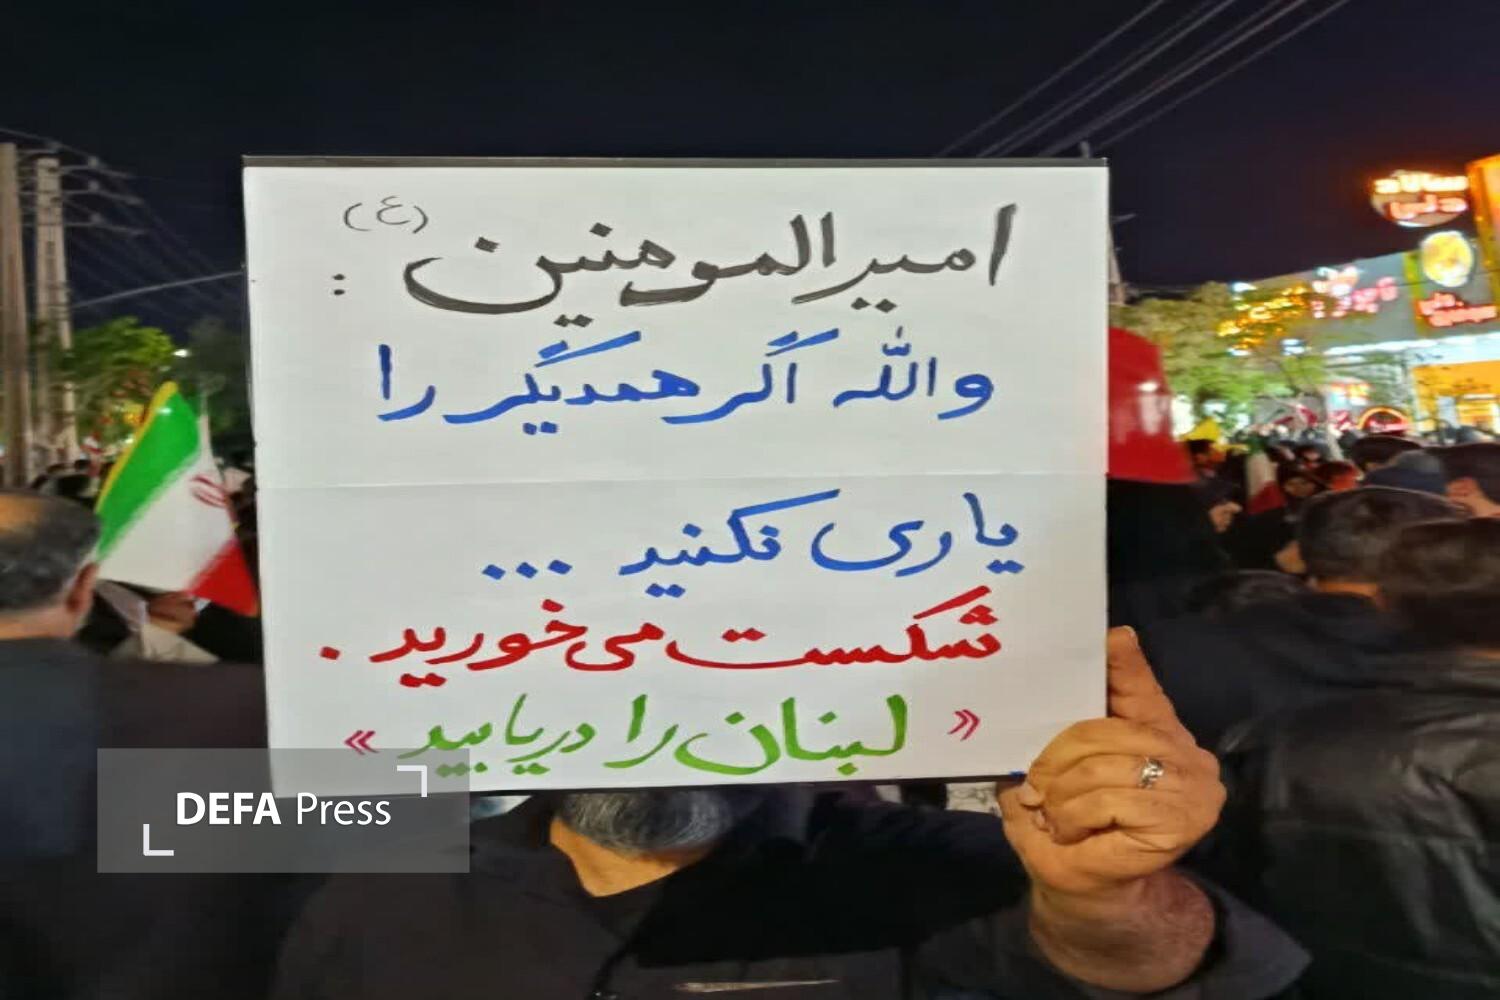 امیرالمومنین (ع) :
والله اگر همدیگر را
یاری نکنید ...
شکست می‌خورید .
« لبنان را دریابید »
DEFA Press